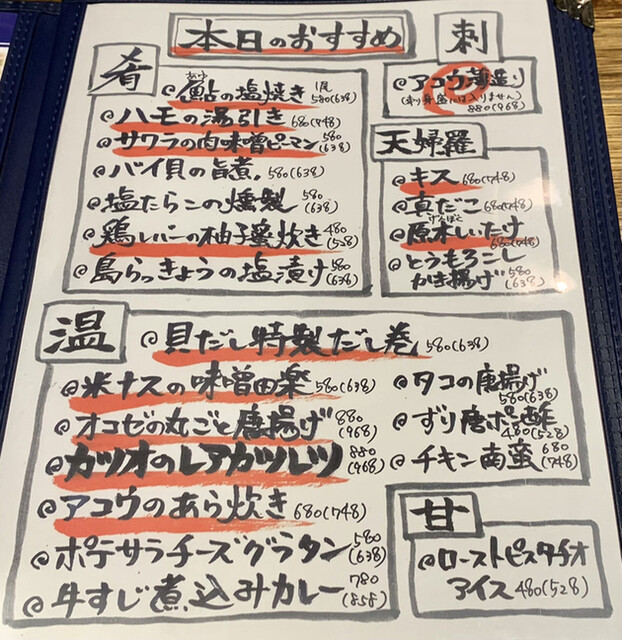 本日のおすすめ
肴
@鮎の塩焼き 1尾 580(638)
あゆ
@ハモの湯引き 680(748)
@サワラの肉味噌ピーマン 580(638)
@バイ貝の旨煮 580(638)
@塩たらこの燻製 580(638)
@鶏レバーの柚子蜜炊き 480(528)
@島らっきょうの塩漬け 580(638)
刺
@アコウ薄造り
(刺身盛には入りません)
880(968)
天婦羅
@キス 680(748)
@真だこ 680(748)
げんぼく
@原木しいたけ
680(748)
@とうもろこし
かき揚げ 580(638)
温
@貝だし特製だし巻 580(638)
@米ナスの味噌田楽 580(638)
@オコゼの丸ごと唐揚げ 880(968)
@カツオのレアカツレツ 880(968)
@アコウのあら炊き 680(748)
@ポテサラチーズグラタン 580(638)
@牛すじ煮込みカレー 780(858)
@タコの唐揚げ
580(638)
@ずり唐ポン酢
480(528)
@チキン南蛮 680(748)
甘
@ローストピスタチオ
アイス 480(528)